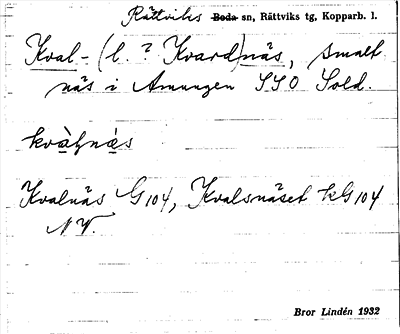 Rättviks Boda sn, Rättviks tg, Kopparb. l.
Kval- (l. ? Kvard)näs, smalt
näs i Amungen SSO Sold.
kvàḷnä̀s
Kvalnäs G 104, Kvalsnäset kG 104
NV.
Bror Lindén 1932